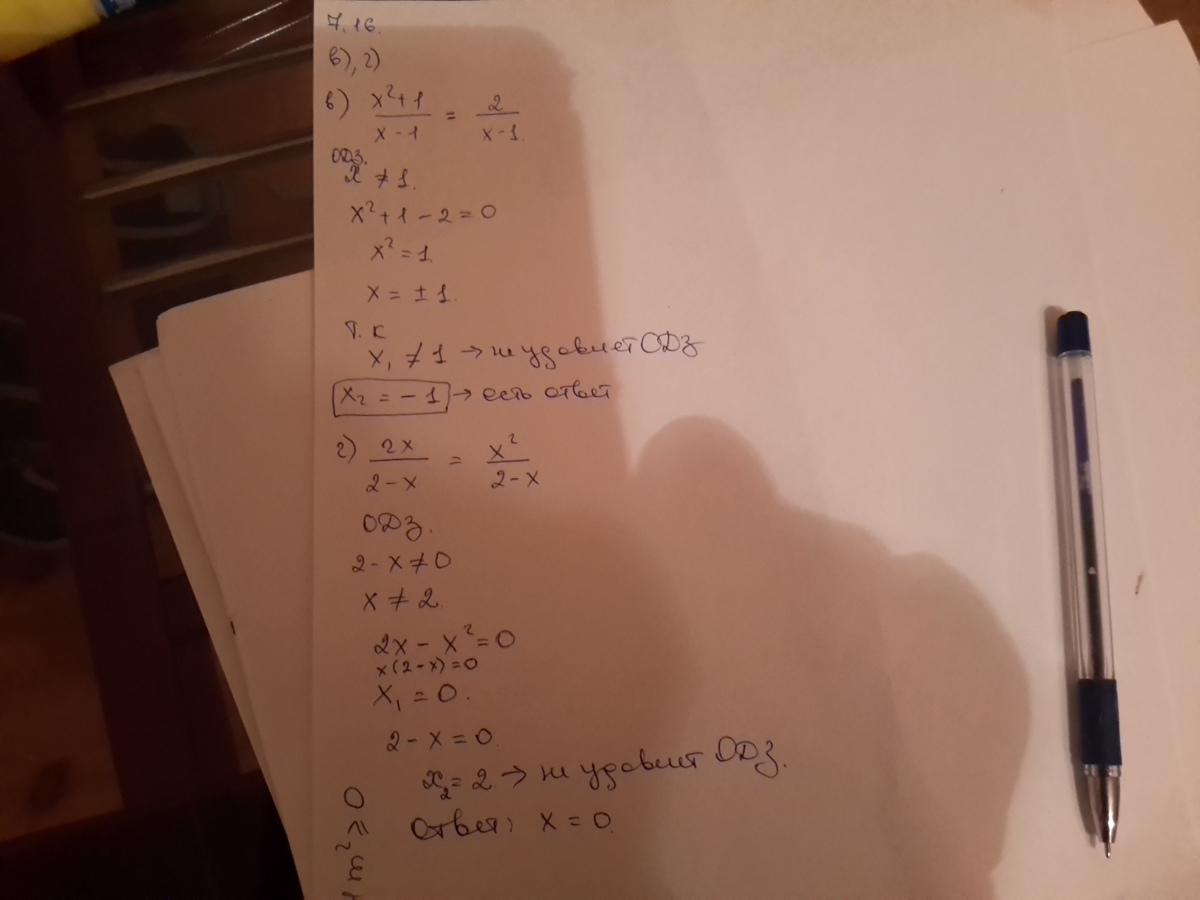 7.16.
в), г)
в) (x²+1)/(x-1) = 2/(x-1).
ОДЗ.
x ≠ 1.
x²+1-2=0
x²=1.
x=±1.
Т.к
x₁ ≠ 1 → не удовлет ОДЗ
x₂ = -1 → есть ответ
г) 2x/(2-x) = x²/(2-x)
ОДЗ.
2-x≠0
x ≠ 2.
2x-x²=0
x(2-x)=0
x₁=0.
2-x=0.
x₂=2. → не удовлет ОДЗ.
Ответ: x=0.